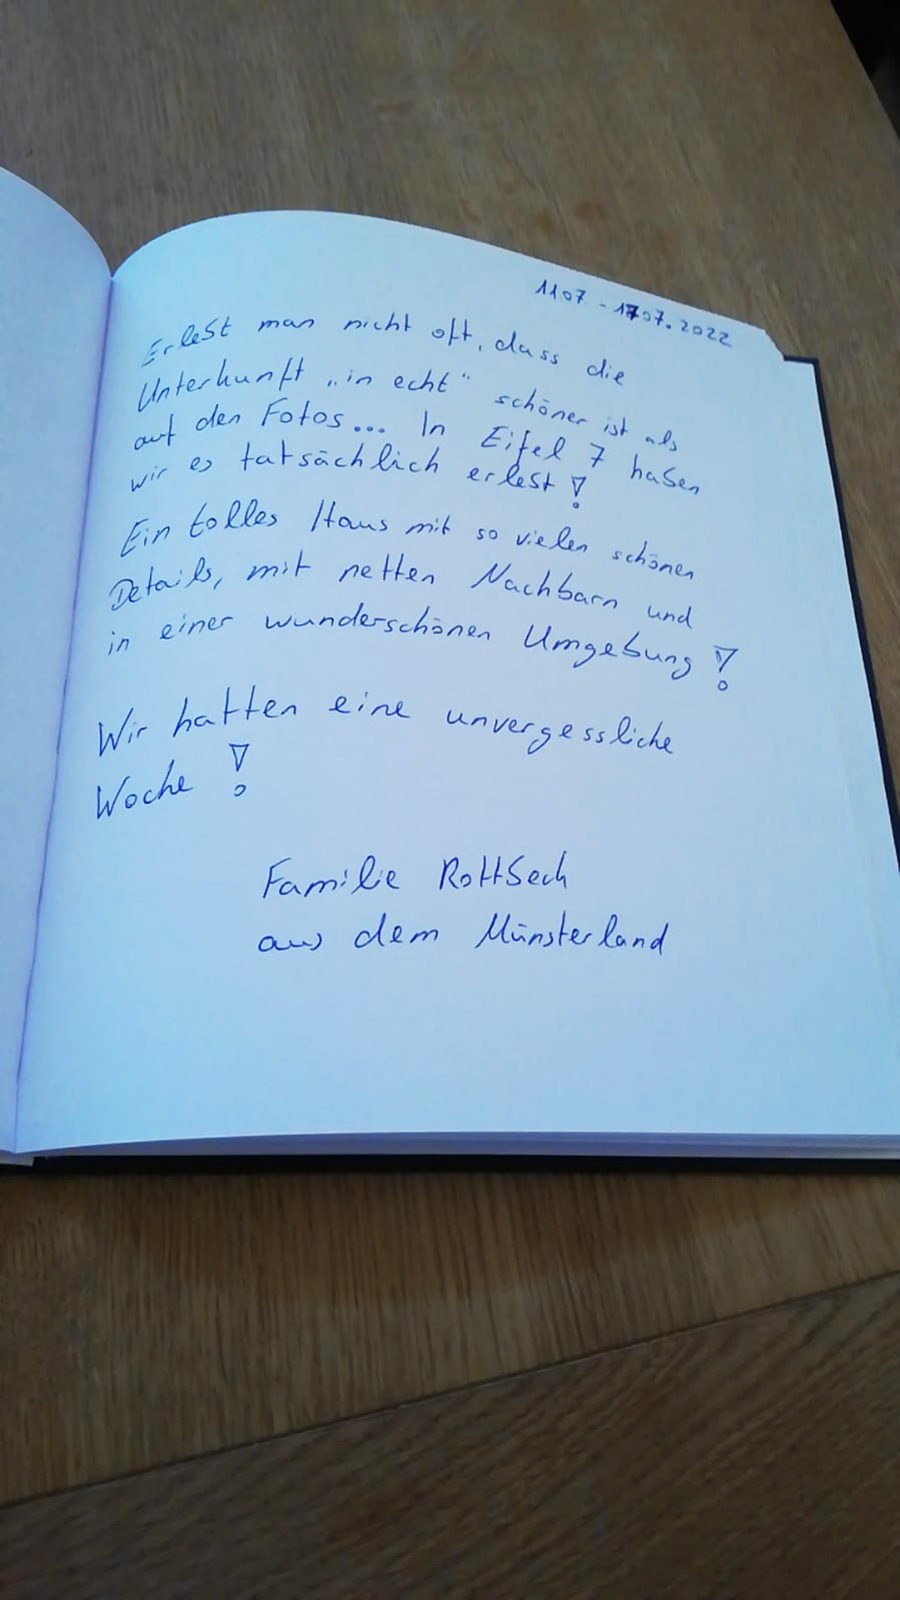 1107 - 1707.2022
Erlebt man nicht oft, dass die
Unterkunft „in echt“ schöner ist als
auf den Fotos... In Eifel 7 haben
wir es tatsächlich erlebt!
Ein tolles Haus mit so vielen schönen
Details, mit netten Nachbarn und
in einer wunderschönen Umgebung!
Wir hatten eine unvergessliche
Woche!
Familie Rottbeck
aus dem Münsterland